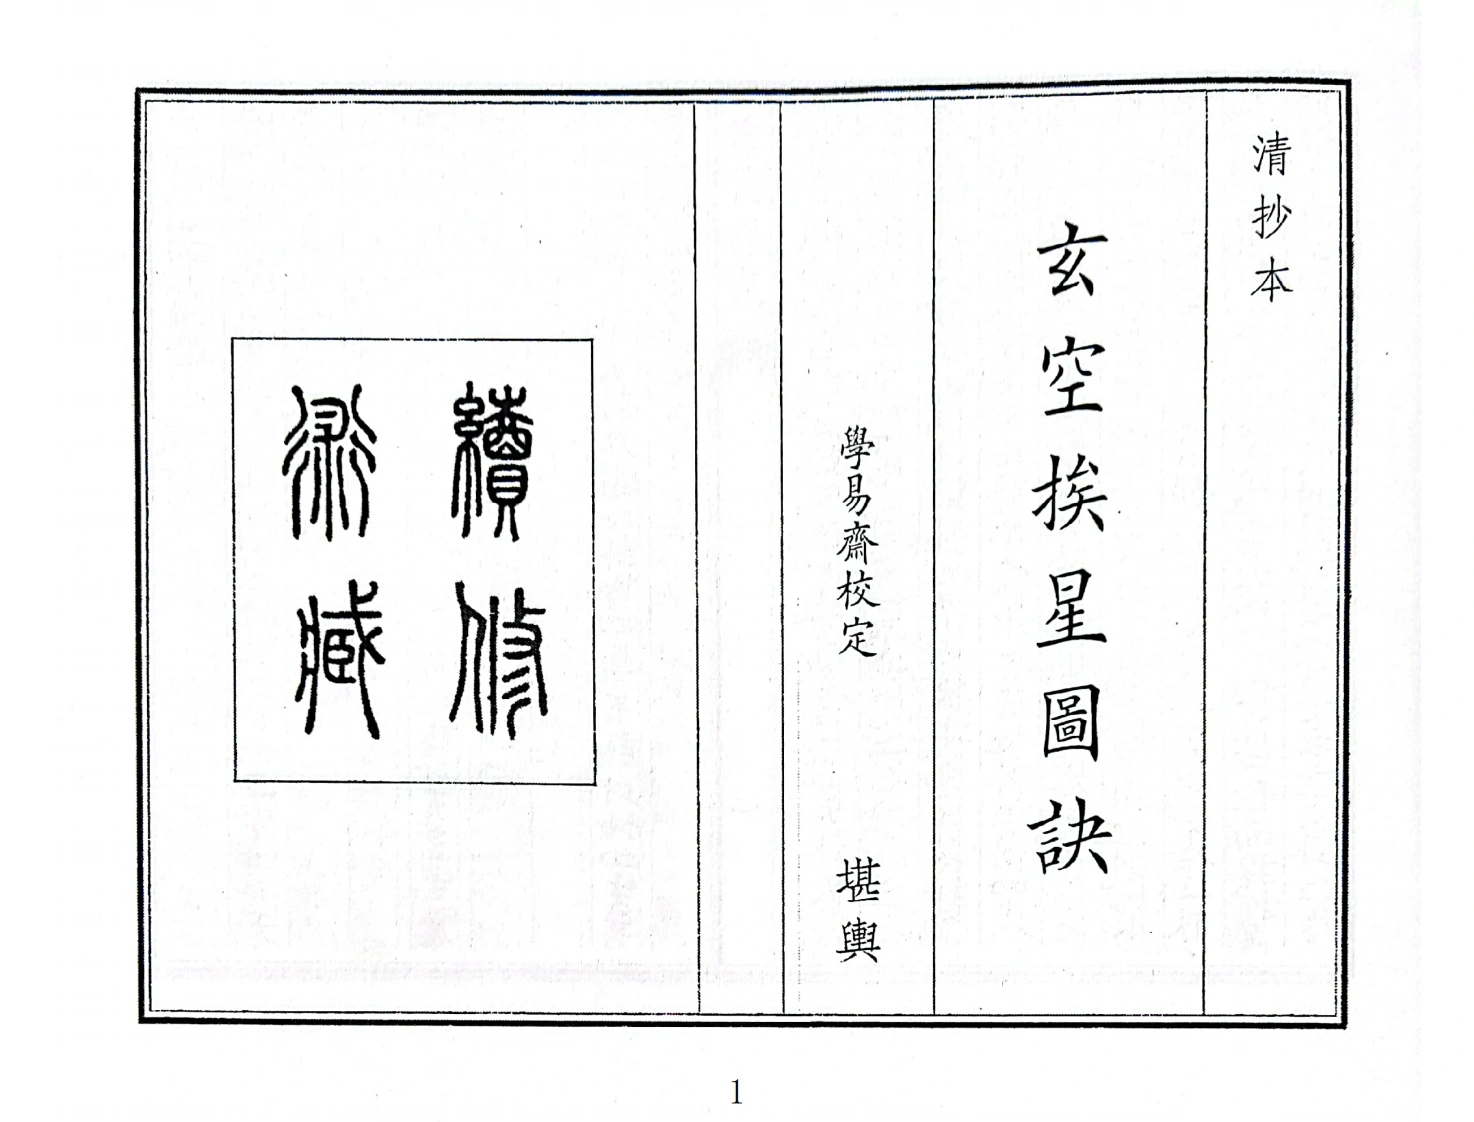 清抄本
玄空挨星圖訣
學易齋校定
堪輿
續修
術藏
1